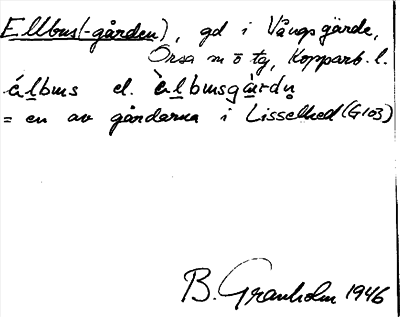 Ellbus(-gården), gd i Vångsgärde,
Orsa sn o tg, Kopparb. l.
álbus el. àlbusgàrdn̥
= en av gårdarna i Lisselhed (G103)
B. Granholm 1946